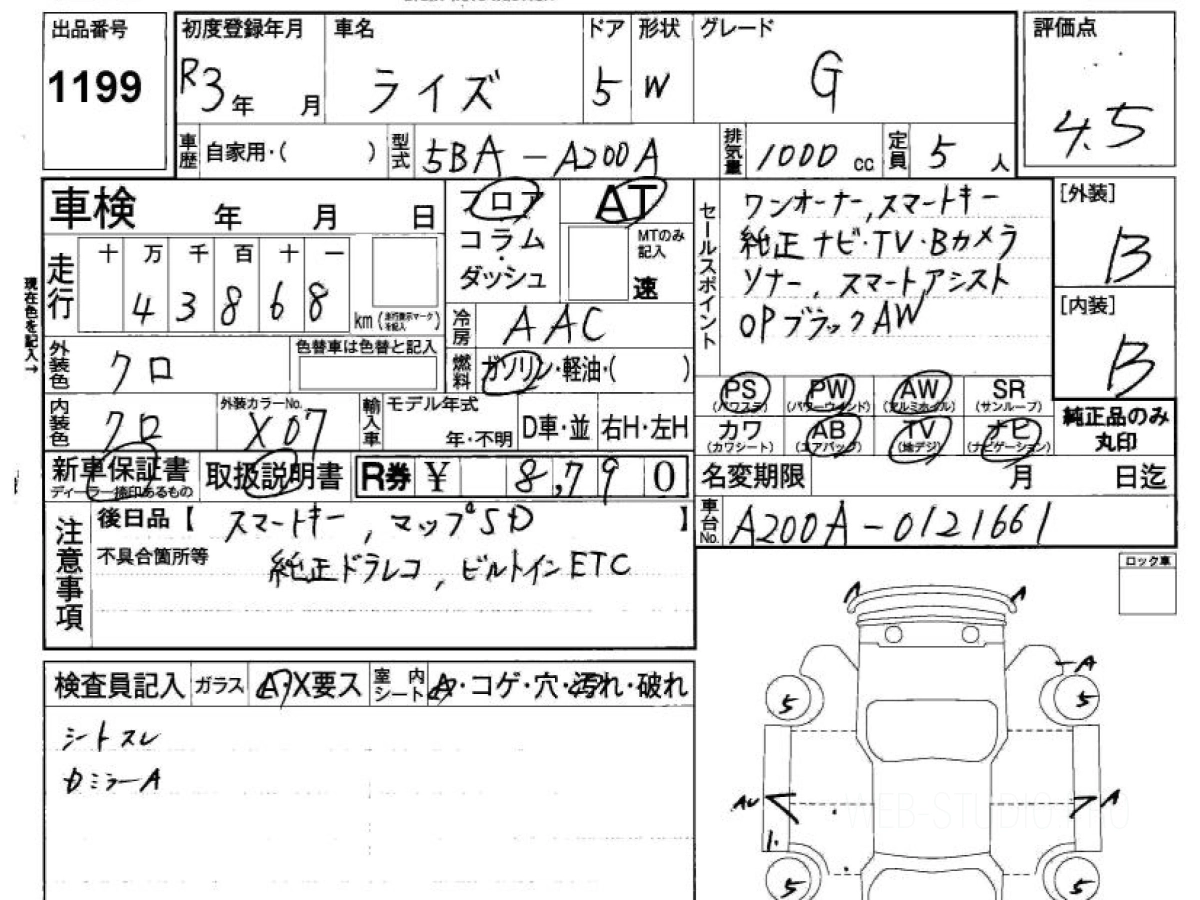 出品番号 初度登録年月 車名 ドア 形状 グレード 評価点
1199 R3年 月 ライズ 5 W G 4.5
車歴 自家用・( ) 型式 5BA-A200A 排気量 1000 cc 定員 5 人
車検 年 月 日 フロア AT セールスポイント ワンオーナー,スマートキー [外装]
コラム MTのみ記入 純正ナビ・TV・Bカメラ B
走行 十 万 千 百 十 一 ダッシュ 速 ソナー、スマートアシスト
4 3 8 6 8 km (走行表示マークを記入) 冷房 AAC OPブラックAW [内装]
現在色を記入→
外装色 クロ 色替車は色替と記入 燃料 ガソリン・軽油・( ) B
PS (パワステ) PW (パワーウィンド) AW (アルミホイル) SR (サンルーフ)
内装色 クロ 外装カラーNo. X07 輸入車 モデル年式 年・不明 D車・並 右H・左H
カワ (カワシート) AB (エアバッグ) TV (地デジ) ナビ (ナビゲーション) 純正品のみ丸印
新車保証書 ディーラー捺印あるもの 取扱説明書 R券 ¥ 8,790 名変期限 月 日迄
注意事項 後日品【 スマートキー,マップSD 】 車台No. A200A-0121661
不具合箇所等 純正ドラレコ,ビルトインETC
ロック車
検査員記入 ガラス A・X要ス 室内シート A・コゲ・穴・汚れ・破れ
シートスレ
Dミラー A
A A
-A
5 5
AU A
1.
5 5
WEB-STUDIO.PRO